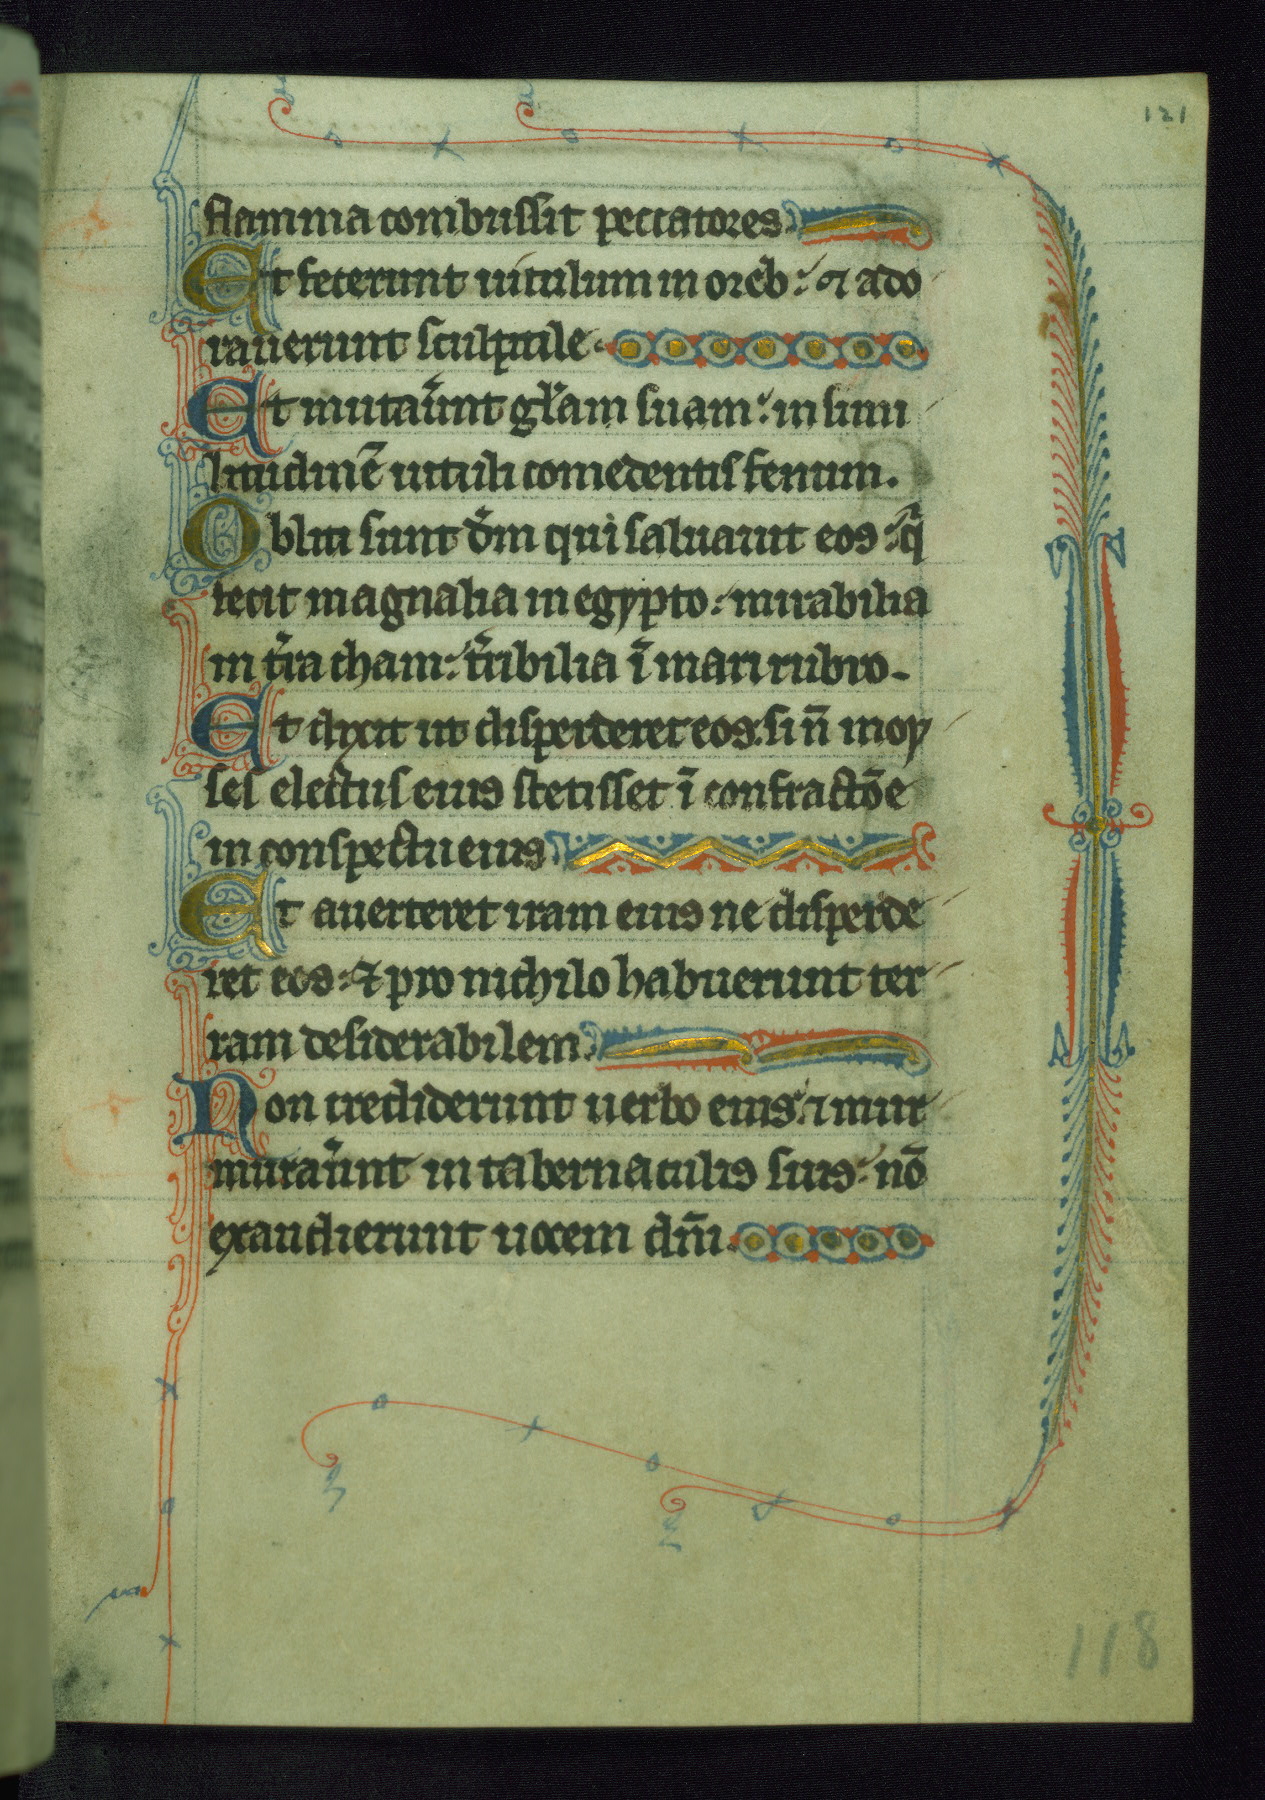 121
flamma combussit peccatores.
Et fecerunt uitulum in oreb: ⁊ ado
rauerunt sculptile.
Et mutaůnt gl̃am suam: in simi
litudinẽ uituli comedentis fenum.
Obliti sunt dm̃ qui saluauit eos: q̃
fecit magnalia in egypto: mirabilia
in t̃ra cham: t̃ribilia ĩ mari rubro.
Et dixit ut disperderet eos: si ñ moy
ses electus eius stetisset ĩ confractõe
in conspectu eius
Et auerteret iram eius ne disperde
ret eos: ⁊ pro nichilo habuerunt ter
ram desiderabilem.
Non crediderunt uerbo eius: ⁊ mur
muraůnt in tabernaculis suis: nõ
exaudierunt uocem dñi.
118